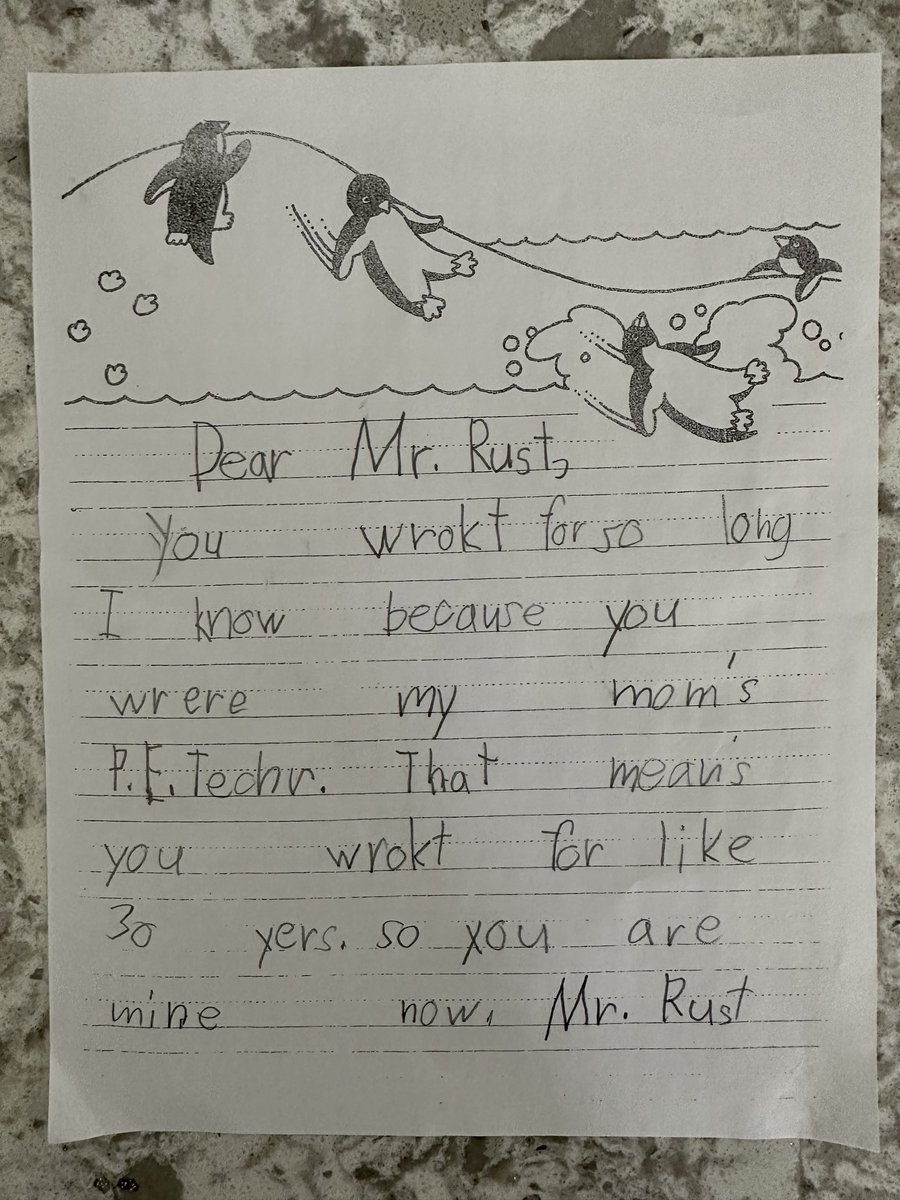 Dear Mr. Rust,
You wrokt for so long
I know because you
wrere my mom's
P.E. Techr. That mean's
you wrokt for like
30 yers. so you are
mine now, Mr. Rust